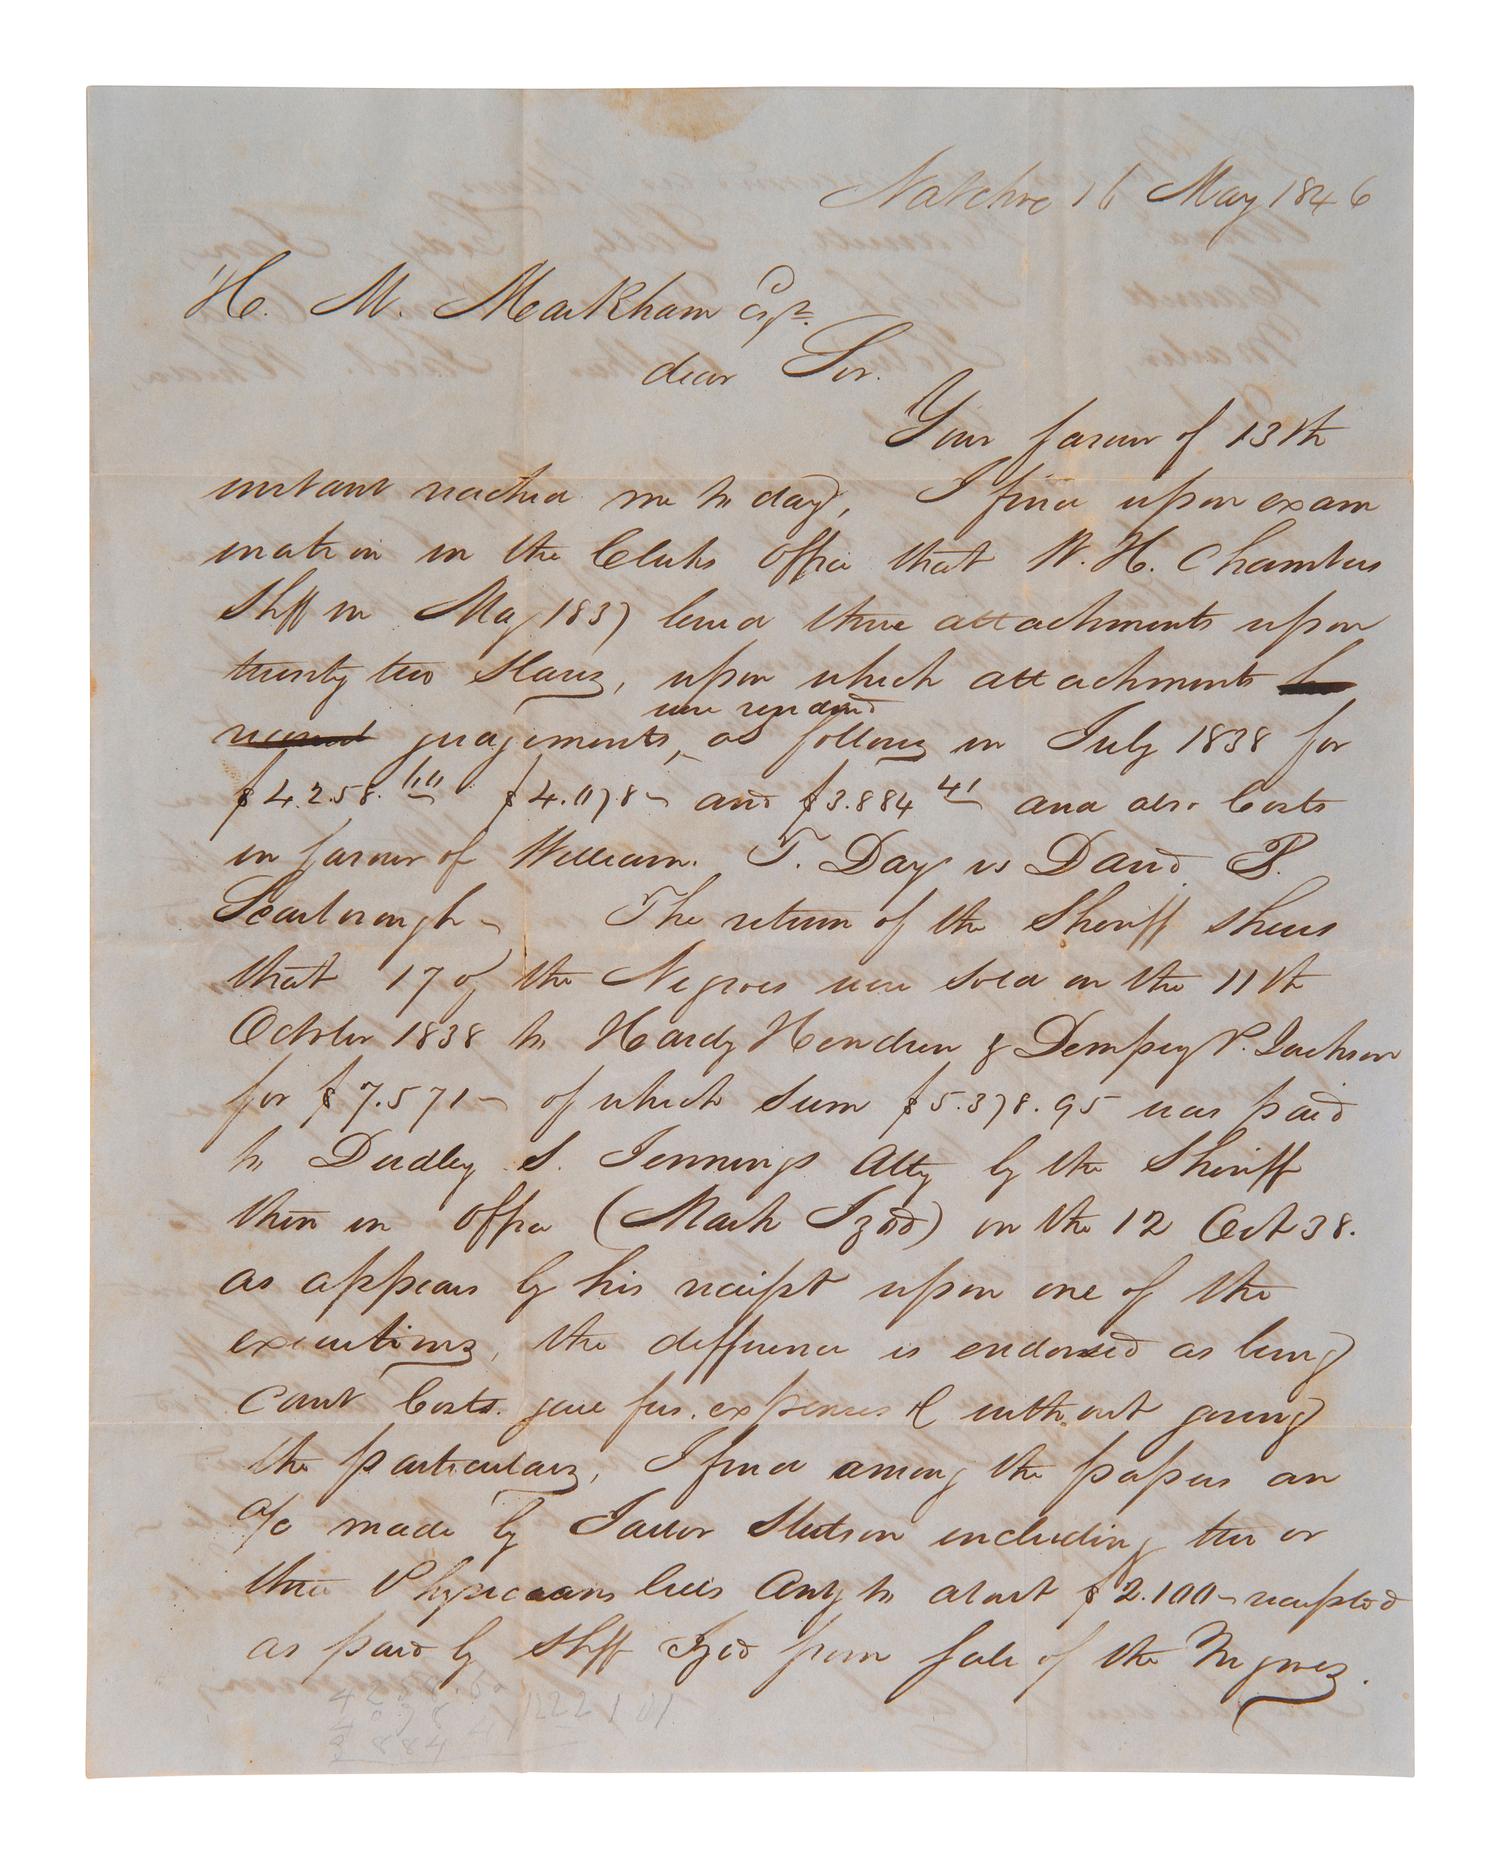 Natchez 16 May 1846
H. M. Markham Esqr.
dear Sir.
Your favour of 13th
instant reached me to day, I find upon exam
ination in the Clerks office that W. H. Chambers
Shff in May 1837 levied three attachments upon
twenty two slaves, upon which attachments
were rendered
judgements, as follows in July 1838 for
$4.258.00 $4.078- and $3.884 41 and also Costs
in favour of William. T. Day vs David
Scarborough- The return of the Sheriff shews
that 17 of the Negroes were sold on the 11th
October 1838 to Hardy Hendren & Dempsey P. Jackson
for $7.571- of which sum $5.378.95 was paid
to Dudley S. Jennings Atty by the Sheriff
then in office (Mark Izod) on the 12 Oct 38.
as appears by his receipt upon one of the
executions, the difference is endorsed as being
court Costs. jail fees. expenses & without giving
the particulars, I find among the papers an
a/c made by Jailor Stutson including two or
three Physicians bills amtg to about $2.100- receipted
as paid by Shff Izod from sale of the Negroes.
4258.
4078
3884 41 12221 01